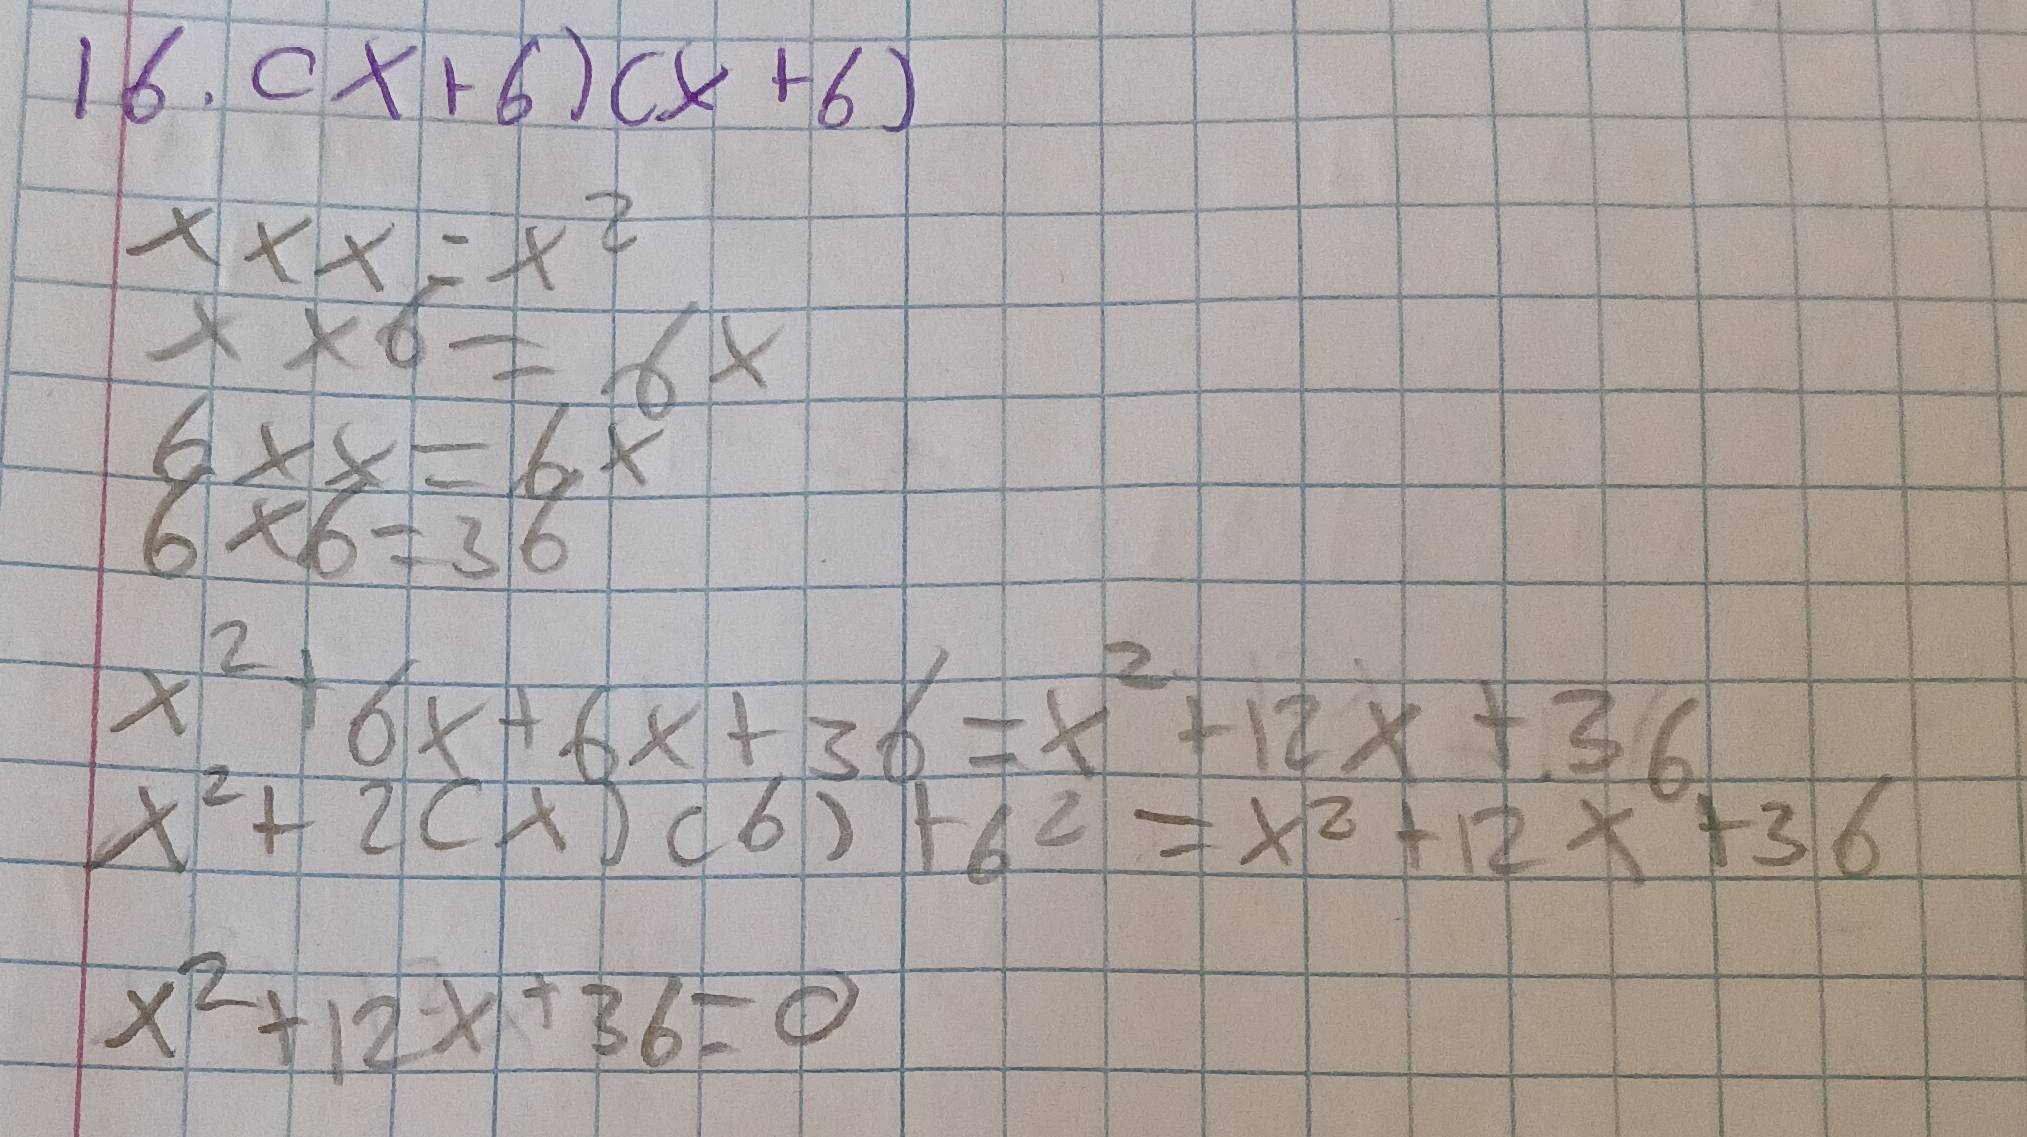 16. (x+6)(x+6)
x x x = x²
x x 6 = 6x
6 x x = 6x
6 x 6 = 36
x² + 6x + 6x + 36 = x² + 12x + 36
x² + 2(x)(6) + 6² = x² + 12x + 36
x² + 12x + 36 = 0